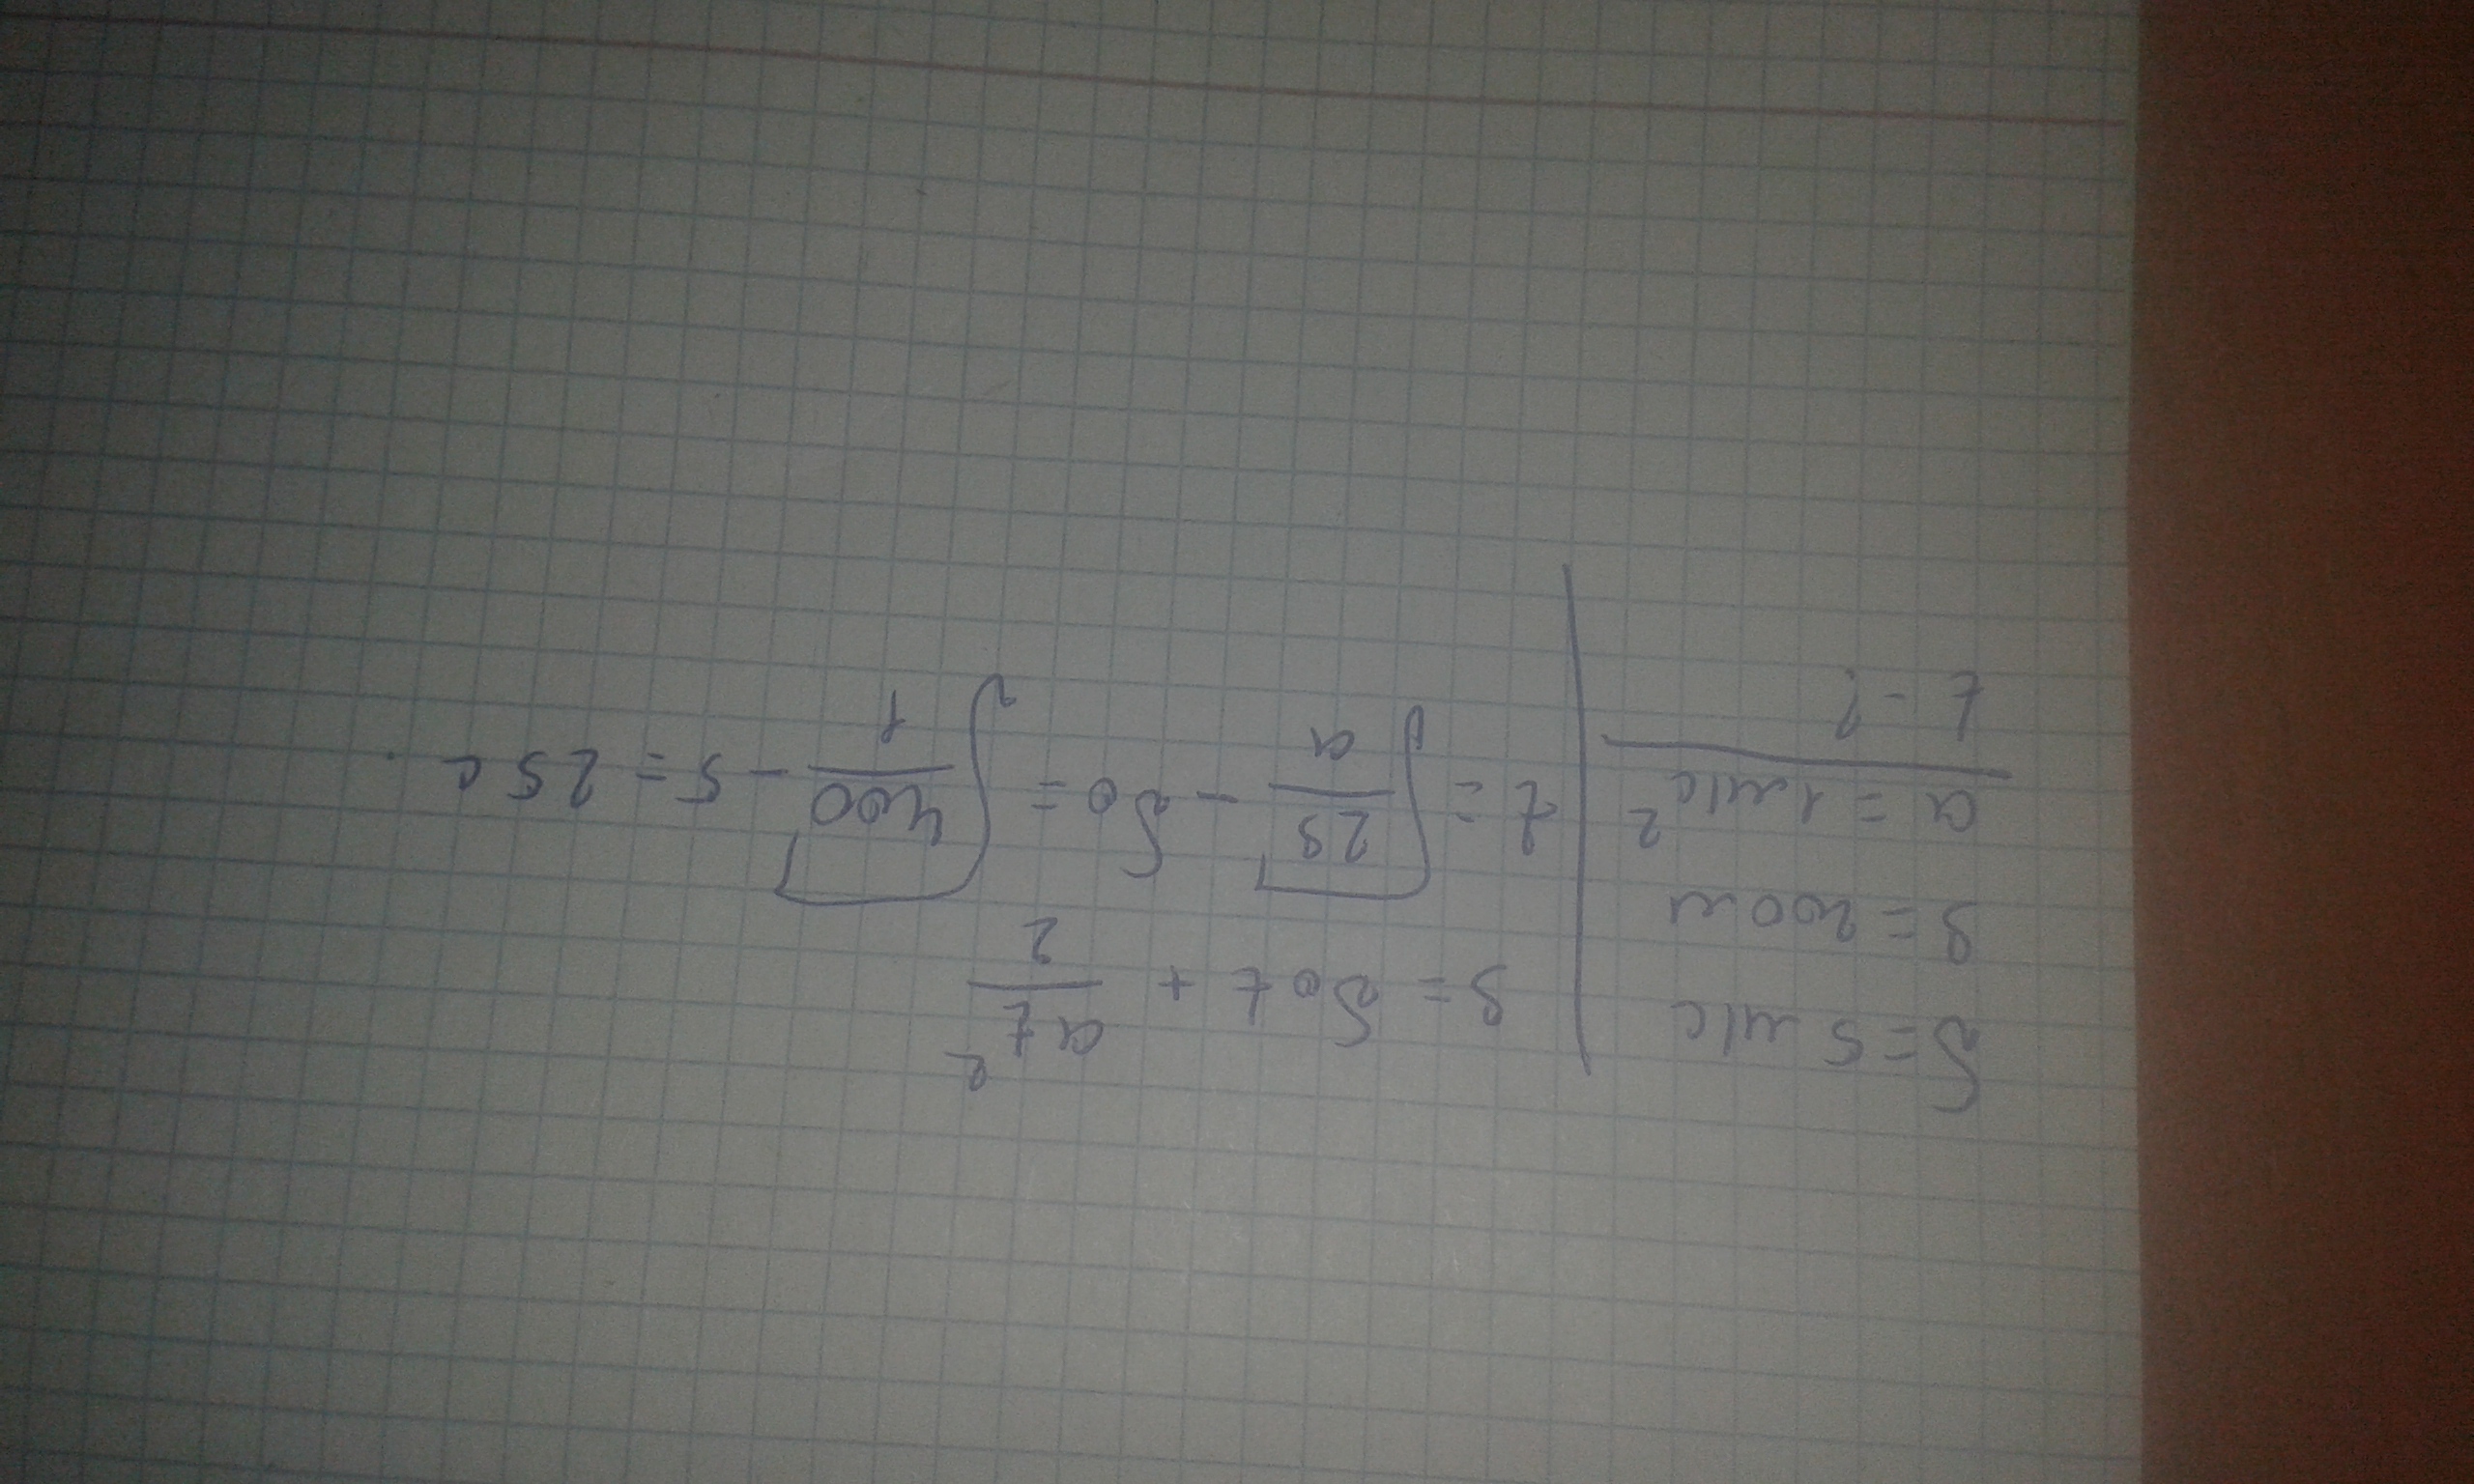 υ=5 м/с
S=200м
a=1м/с²
t-?
S=υ₀t+at²/2
t=√(2S/a)-υ₀=√(400/1)-5=25с.